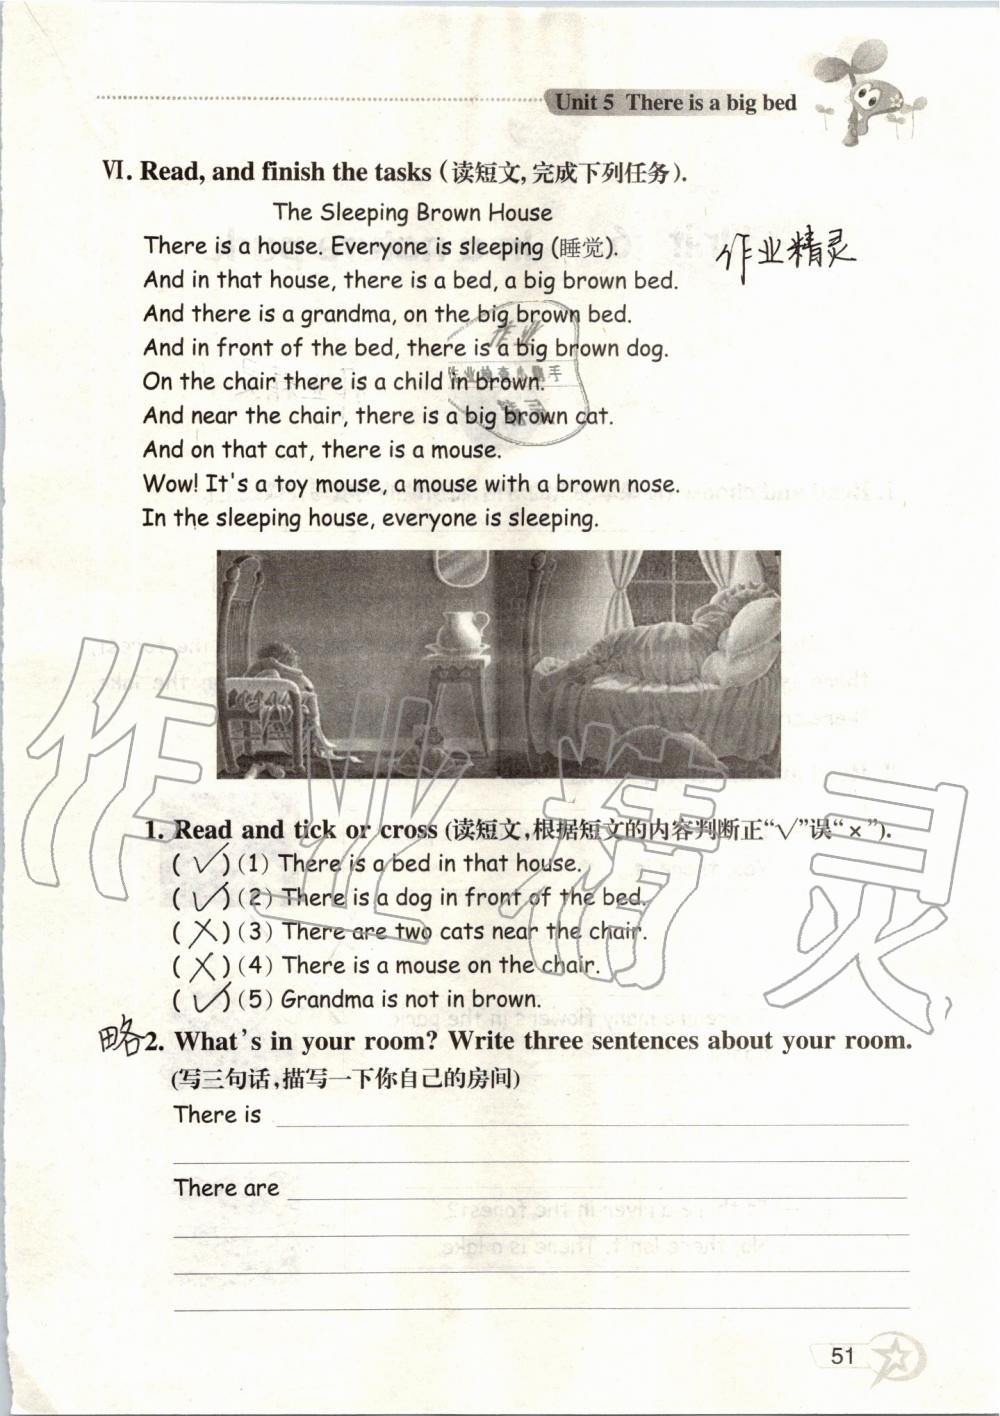 Unit 5 There is a big bed
Ⅵ. Read, and finish the tasks (读短文,完成下列任务).
The Sleeping Brown House
There is a house. Everyone is sleeping (睡觉).
作业精灵
And in that house, there is a bed, a big brown bed.
And there is a grandma, on the big brown bed.
And in front of the bed, there is a big brown dog.
On the chair there is a child in brown.
And near the chair, there is a big brown cat.
And on that cat, there is a mouse.
Wow! It's a toy mouse, a mouse with a brown nose.
In the sleeping house, everyone is sleeping.
作业
作业检查小助手
精灵
作业精灵
1. Read and tick or cross (读短文,根据短文的内容判断正“√”误“×”).
( √ ) (1) There is a bed in that house.
( √ ) (2) There is a dog in front of the bed.
( × ) (3) There are two cats near the chair.
( × ) (4) There is a mouse on the chair.
( √ ) (5) Grandma is not in brown.
略 2. What's in your room? Write three sentences about your room.
(写三句话,描写一下你自己的房间)
There is
There are
51